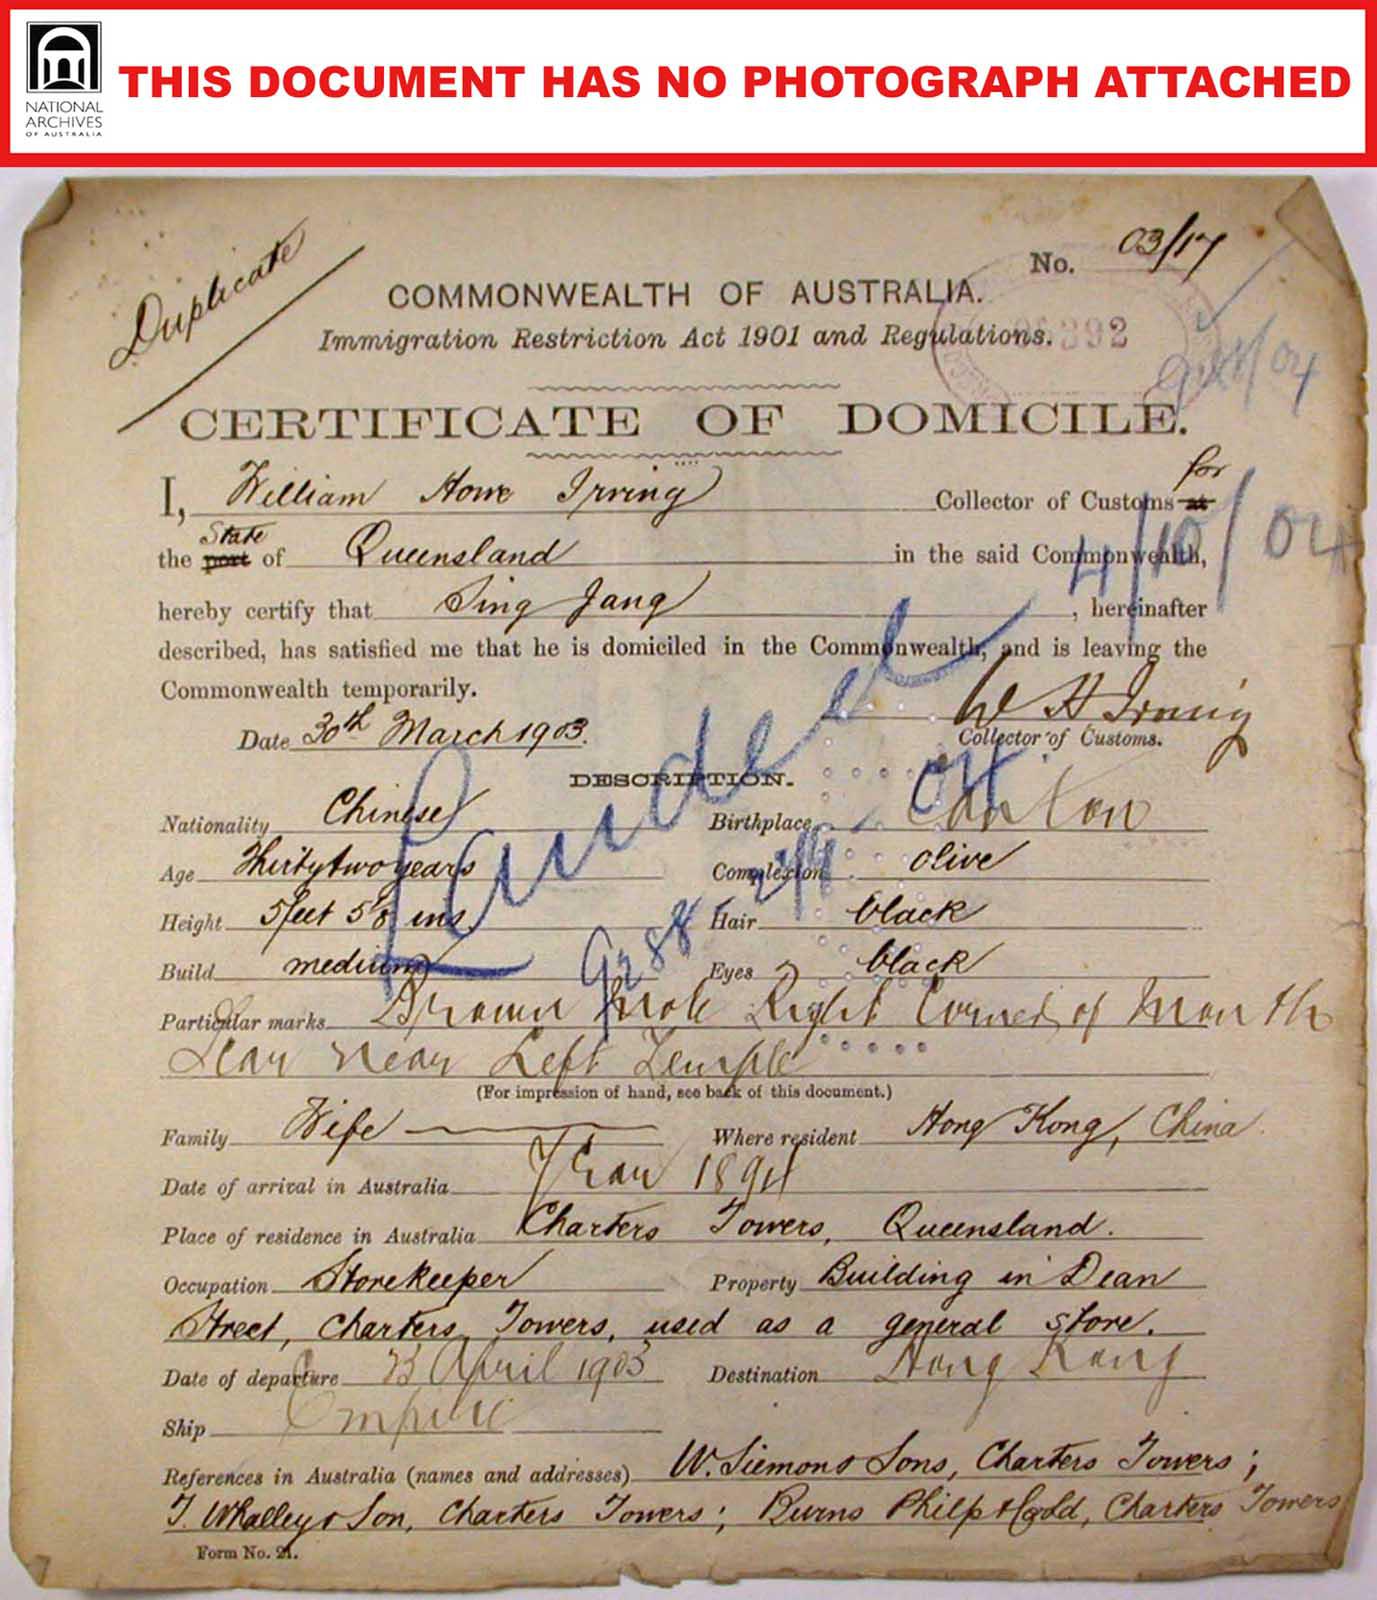 NATIONAL
ARCHIVES
OF AUSTRALIA
THIS DOCUMENT HAS NO PHOTOGRAPH ATTACHED
Duplicate
No. 03/17
COMMONWEALTH OF AUSTRALIA.
Immigration Restriction Act 1901 and Regulations.
392
CERTIFICATE OF DOMICILE.
for
I, William Howe Irving Collector of Customs at
State
the port of Queensland in the said Commonwealth,
4/10/04
hereby certify that Sing Jang, hereinafter
described, has satisfied me that he is domiciled in the Commonwealth, and is leaving the
Commonwealth temporarily.
W H Irving
Date 30th March 1903.
Collector of Customs.
Landed
DESCRIPTION.
Nationality Chinese Birthplace Canton
Age Thirty two years Complexion olive
Height 5 feet ins. Hair black
Build medium Eyes black
Particular marks Brown Mole Right Corner of Mouth
Scar near Left Temple
(For impression of hand, see back of this document.)
Family Wife Where resident Hong Kong, China.
Date of arrival in Australia Year 1894
Place of residence in Australia Charters Towers, Queensland.
Occupation Storekeeper Property Building in Dean
Street, Charters Towers, used as a general store.
Date of departure April 1903 Destination Hong Kong
Ship Empire
References in Australia (names and addresses) W. Siemon & Sons, Charters Towers;
T. Whalley & Son, Charters Towers; Burns Philp & Co Ld, Charters Towers
Form No. 21.